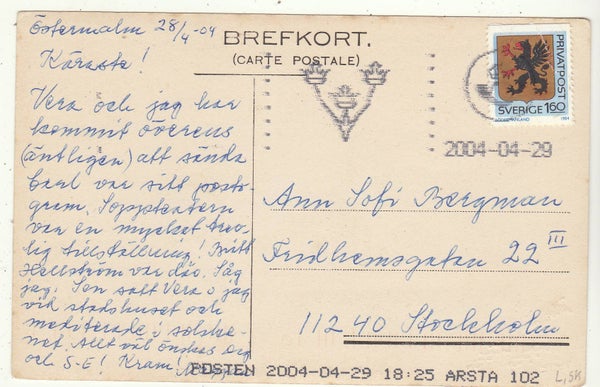 Östermalm 28/4-04
Käraste!
Vera och jag har
kommit överens
(äntligen) att sända
var sitt post-
gram. Soppteatern
var en mycket trev-
lig tillställning! Britt
Hellström var där. Såg
jag. Sen satt Vera o jag
vid stadshuset och
mediterade i solske-
net. Allt väl önskas Dig
och S-E! Kram!
BREFKORT.
(CARTE POSTALE)
PRIVATPOST
SVERIGE 1.60
SÖDERMANLAND 1984
2004-04-29
Ann Sofi Bergman
Fridhemsgatan 22 III
112 40 Stockholm
POSTEN 2004-04-29 18:25 ARSTA 102
L, SK